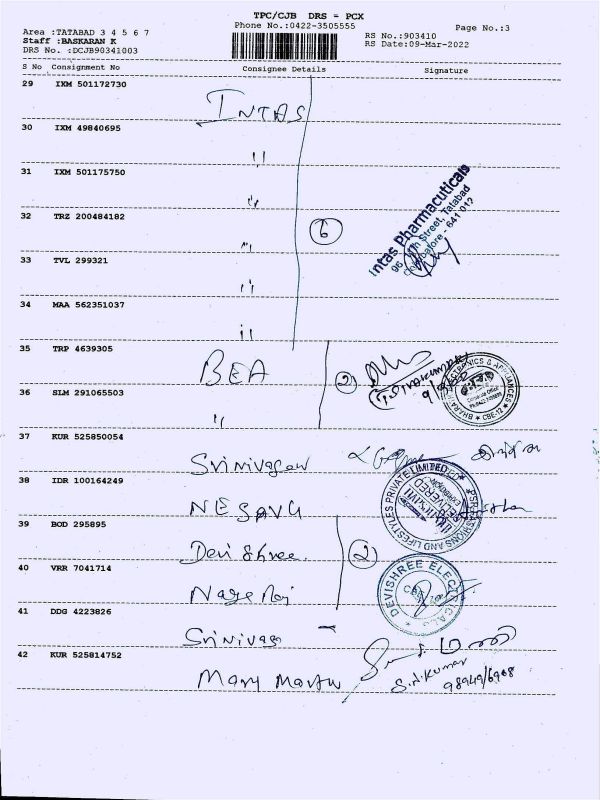 TPC/CJB DRS = PCX
Phone No.:0422-3505555
Page No.:3
Area :TATABAD 3 4 5 6 7
Staff :BASKARAN K
DRS No. :DCJB90341003
RS No.:903410
RS Date:09-Mar-2022
S No Consignment No Consignee Details Signature
29 IXM 501172730 INTAS
30 IXM 49840695 "
31 IXM 501175750 "
32 TRZ 200484182 "
6
Intas Pharmaceuticals
Street, Tatabad
Coimbatore - 641 012
33 TVL 299321 "
34 MAA 562351037 "
35 TRP 4639305 BEA
2
36 SLM 291065503 "
ELECTRONICS & APPLIANCES
CBE-12
37 KUR 525850054 Srinivasan
38 IDR 100164249 NESAVU
FASHIONS AND LIFESTYLES PRIVATE LIMITED
39 BOD 295895 Devi Shree
2
40 VRR 7041714 Nage Raj
DEVISHREE ELECTRICALS
41 DDG 4223826 Srinivas
42 KUR 525814752 Mary Martin
S.N.Kumar